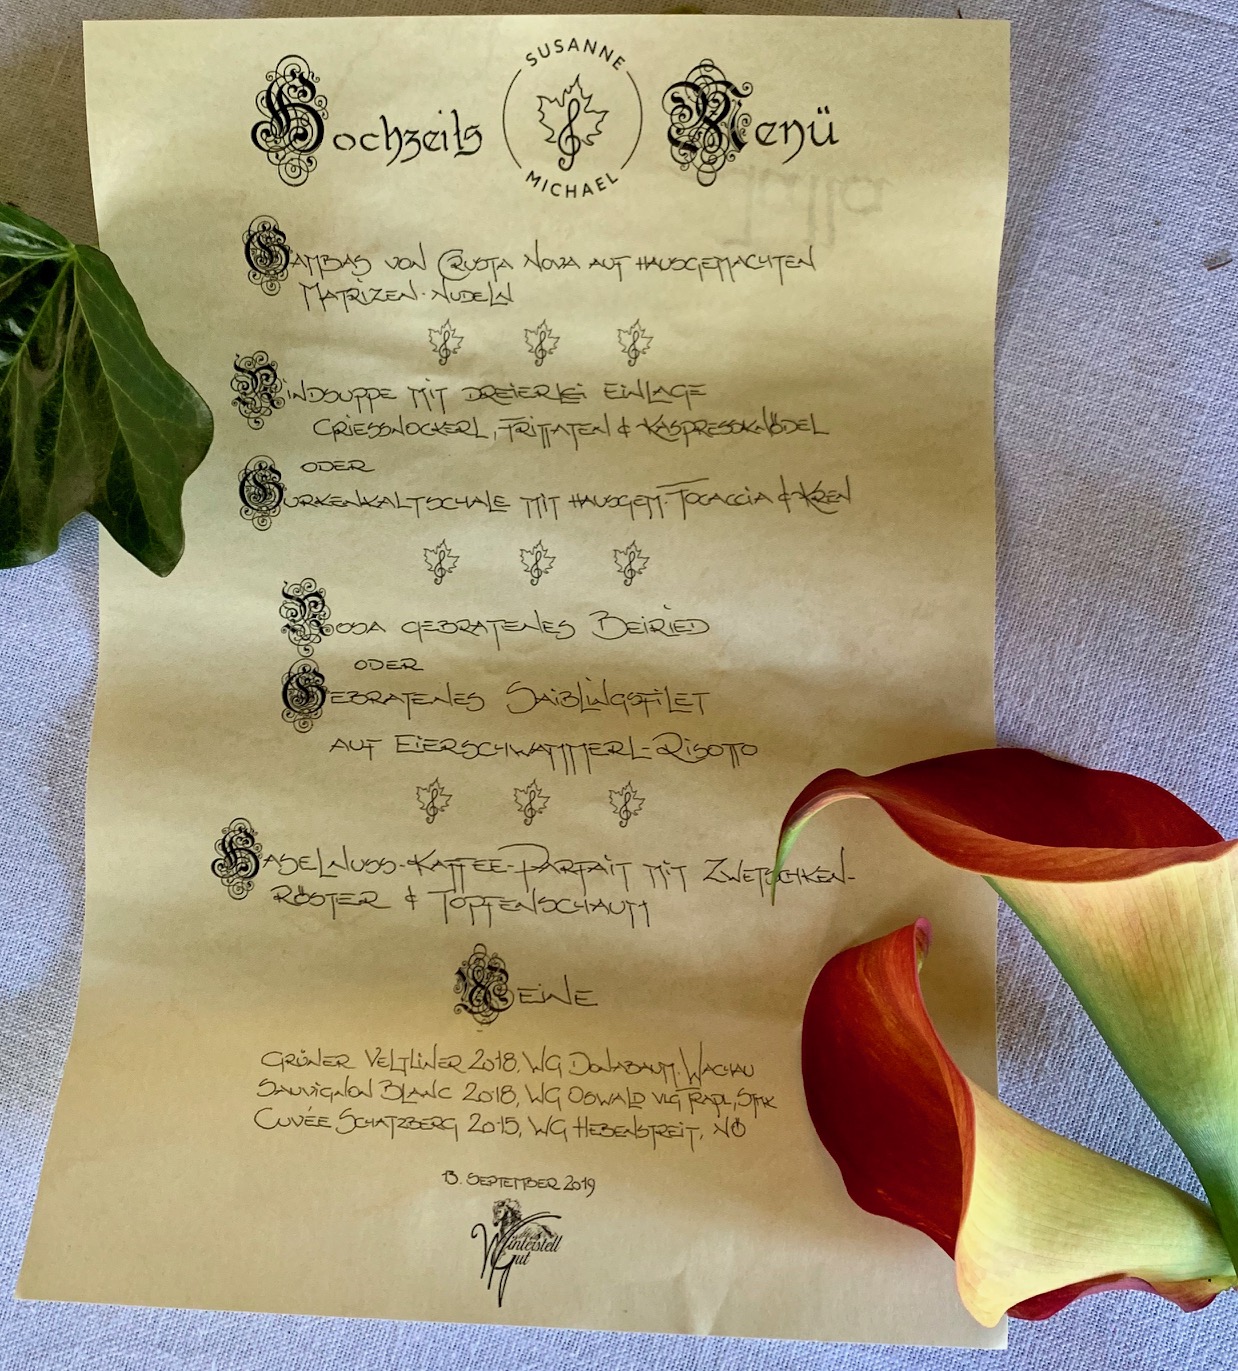 Hochzeits SUSANNE MICHAEL Menü
GAMBAS VON CRUSTA NOVA AUF HAUSGEMACHTEN
MATRIZEN-NUDELN
RINDSUPPE MIT DREIERLEI EINLAGE
GRIESSNOCKERL, FRITTATEN & KASPRESSKNÖDEL
ODER
GURKENKALTSCHALE MIT HAUSGEM. FOCACCIA & KREN
ROSA GEBRATENES BEIRIED
ODER
GEBRATENES SAIBLINGSFILET
AUF EIERSCHWAMMERL-RISOTTO
HASELNUSS-KAFFEE-PARFAIT MIT ZWETSCHKEN-
RÖSTER & TOPFENSCHAUM
WEINE
GRÜNER VELTLINER 2018, WG DONABAUM, WACHAU
SAUVIGNON BLANC 2018, WG OSWALD VLG TRAPL, STMK
CUVÉE SCHATZBERG 2015, WG HEBENSTREIT, NÖ
13. SEPTEMBER 2019
Winterstell
Gut